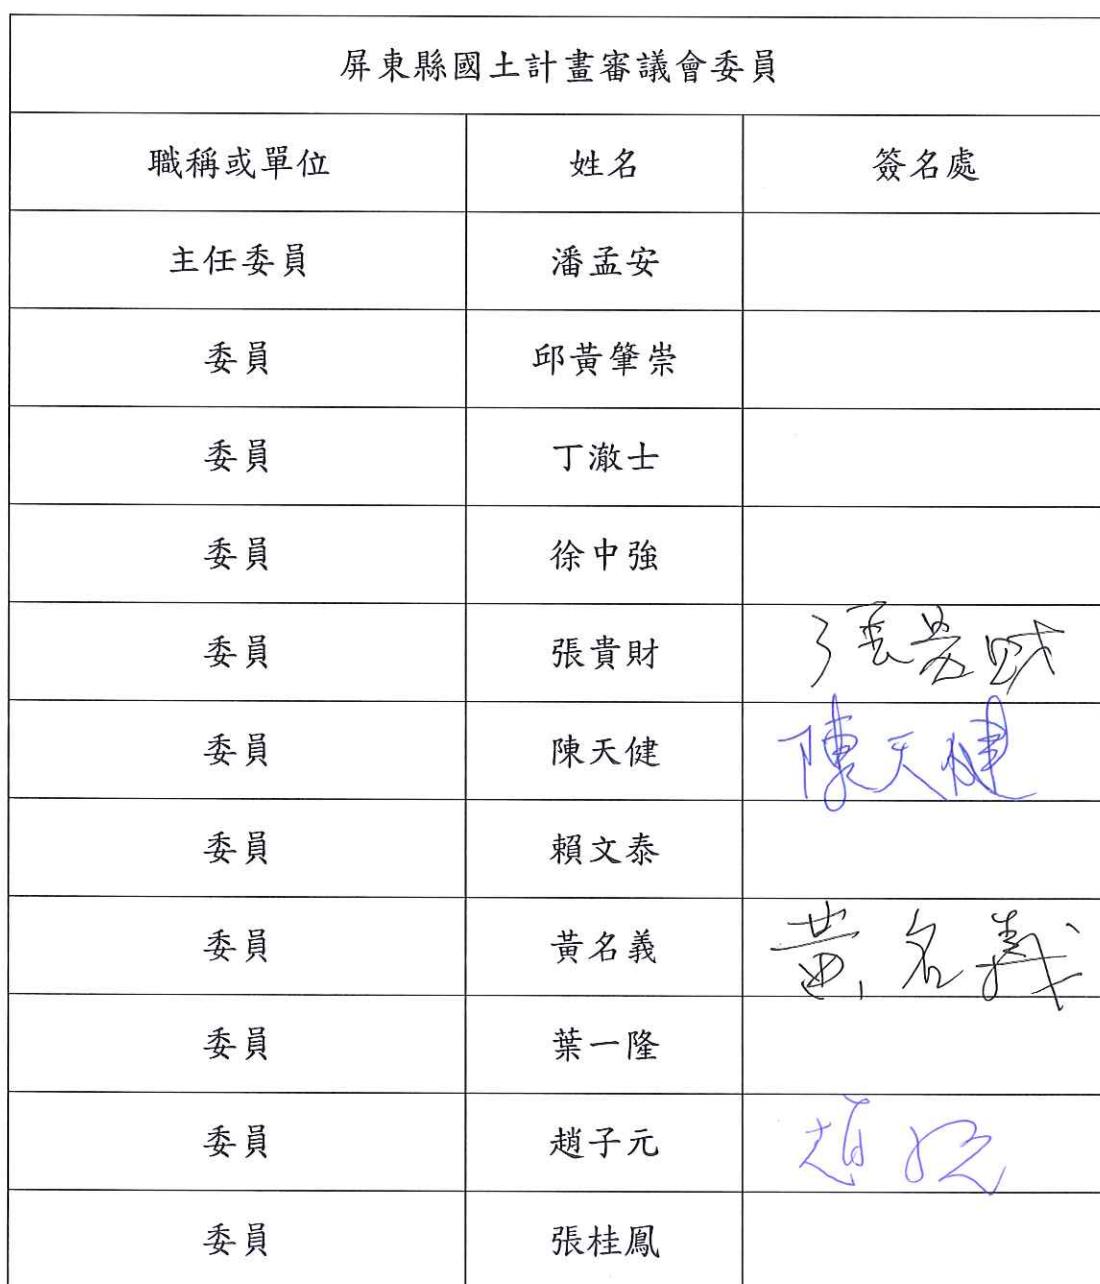 屏東縣國土計畫審議會委員
職稱或單位 姓名 簽名處
主任委員 潘孟安
委員 邱黃肇崇
委員 丁澈士
委員 徐中強
委員 張貴財 張貴財
委員 陳天健 陳天健
委員 賴文泰
委員 黃名義 黃名義
委員 葉一隆
委員 趙子元 趙子元
委員 張桂鳳